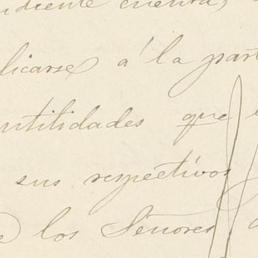 diente cuenta,
licarse á la part
ntidades que
sus respectivos
los Señores